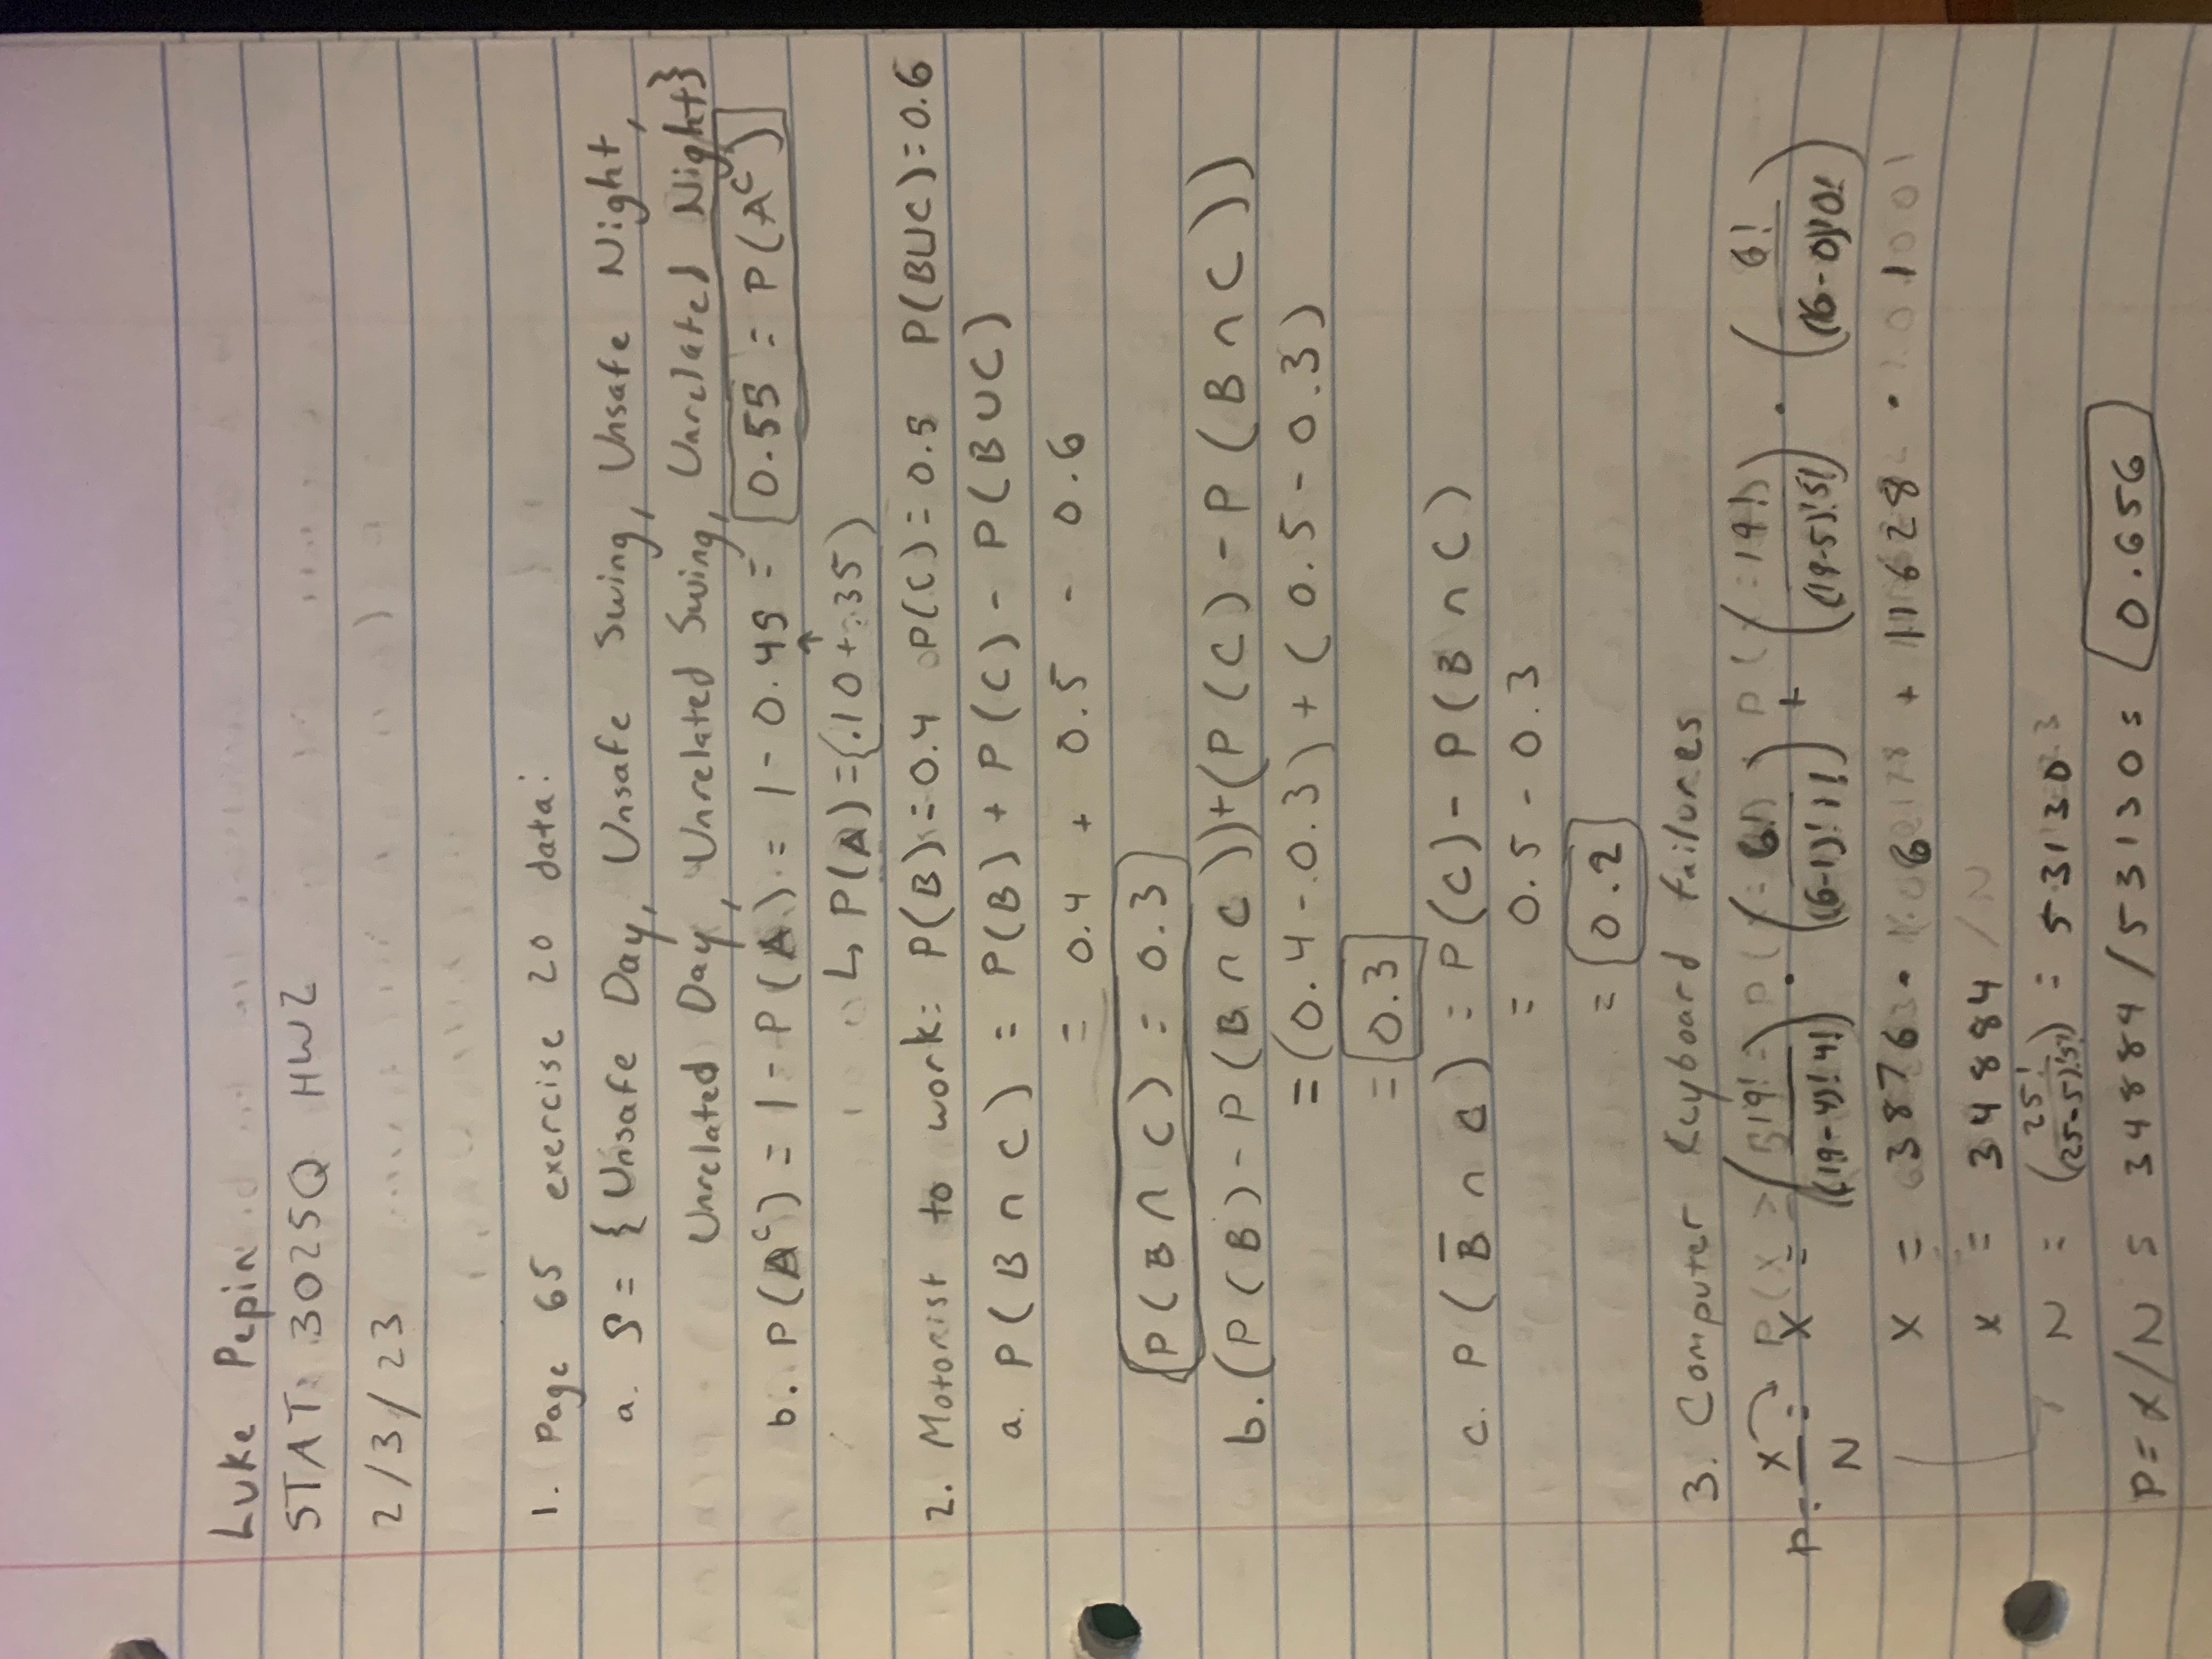 Luke Pepin
STAT: 3025Q HW2
2/3/23
1. Page 65 exercise 20 data:
a. S = { Unsafe Day, Unsafe Swing, Unsafe Night,
Unrelated Day, Unrelated Swing, Unrelated Night}
b. P(A^c) = 1 - P(A) = 1 - 0.45 = 0.55 = P(A^c)
↑
↳ P(A) = (.10 + .35)
2. Motorist to work: P(B) = 0.4 P(C) = 0.5 P(B∪C) = 0.6
a. P(B ∩ C) = P(B) + P(C) - P(B∪C)
= 0.4 + 0.5 - 0.6
P(B ∩ C) = 0.3
b. (P(B) - P(B ∩ C)) + (P(C) - P(B ∩ C))
= (0.4 - 0.3) + (0.5 - 0.3)
= 0.3
c. P(B̅ ∩ C) = P(C) - P(B ∩ C)
= 0.5 - 0.3
= 0.2
3. Computer Keyboard failures
P = X/N = X = (19!/((19-4)! 4!)) · (6!/((6-1)! 1!)) + (19!/((19-5)! 5!)) · (6!/((6-0)! 0!))
X = 3876 · 6 + 11628 · 1
X = 34884
N = (25!/((25-5)! 5!)) = 53130
P = X/N = 34884/53130 = 0.656